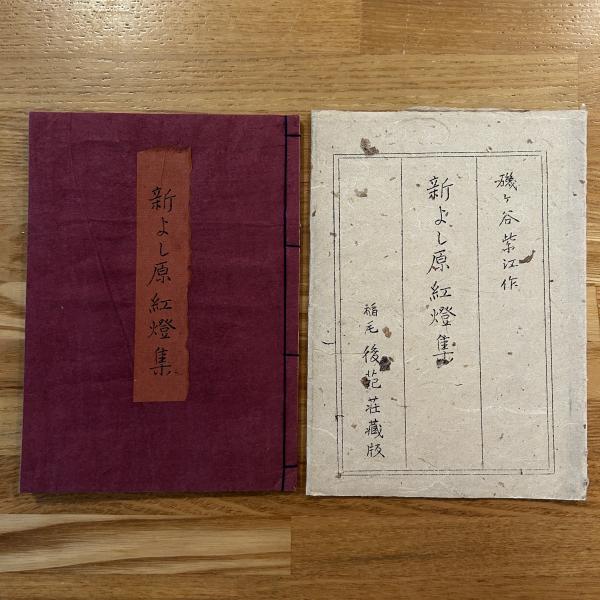 新よし原紅燈集
磯ヶ谷紫江作
新よし原紅燈集
稲毛 後苑荘蔵版